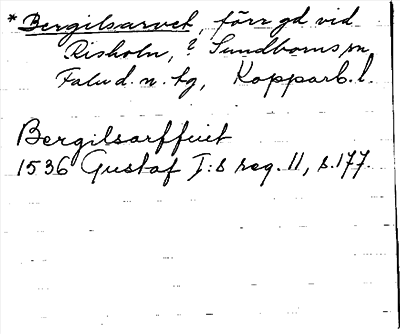 *Bergilsarvet, förr gd vid
Risholn, ? Sundborns sn
Falu d. n. tg, Kopparb. l.
Bergilsarffuit
1536 Gustaf I:s reg. 11, s. 177.